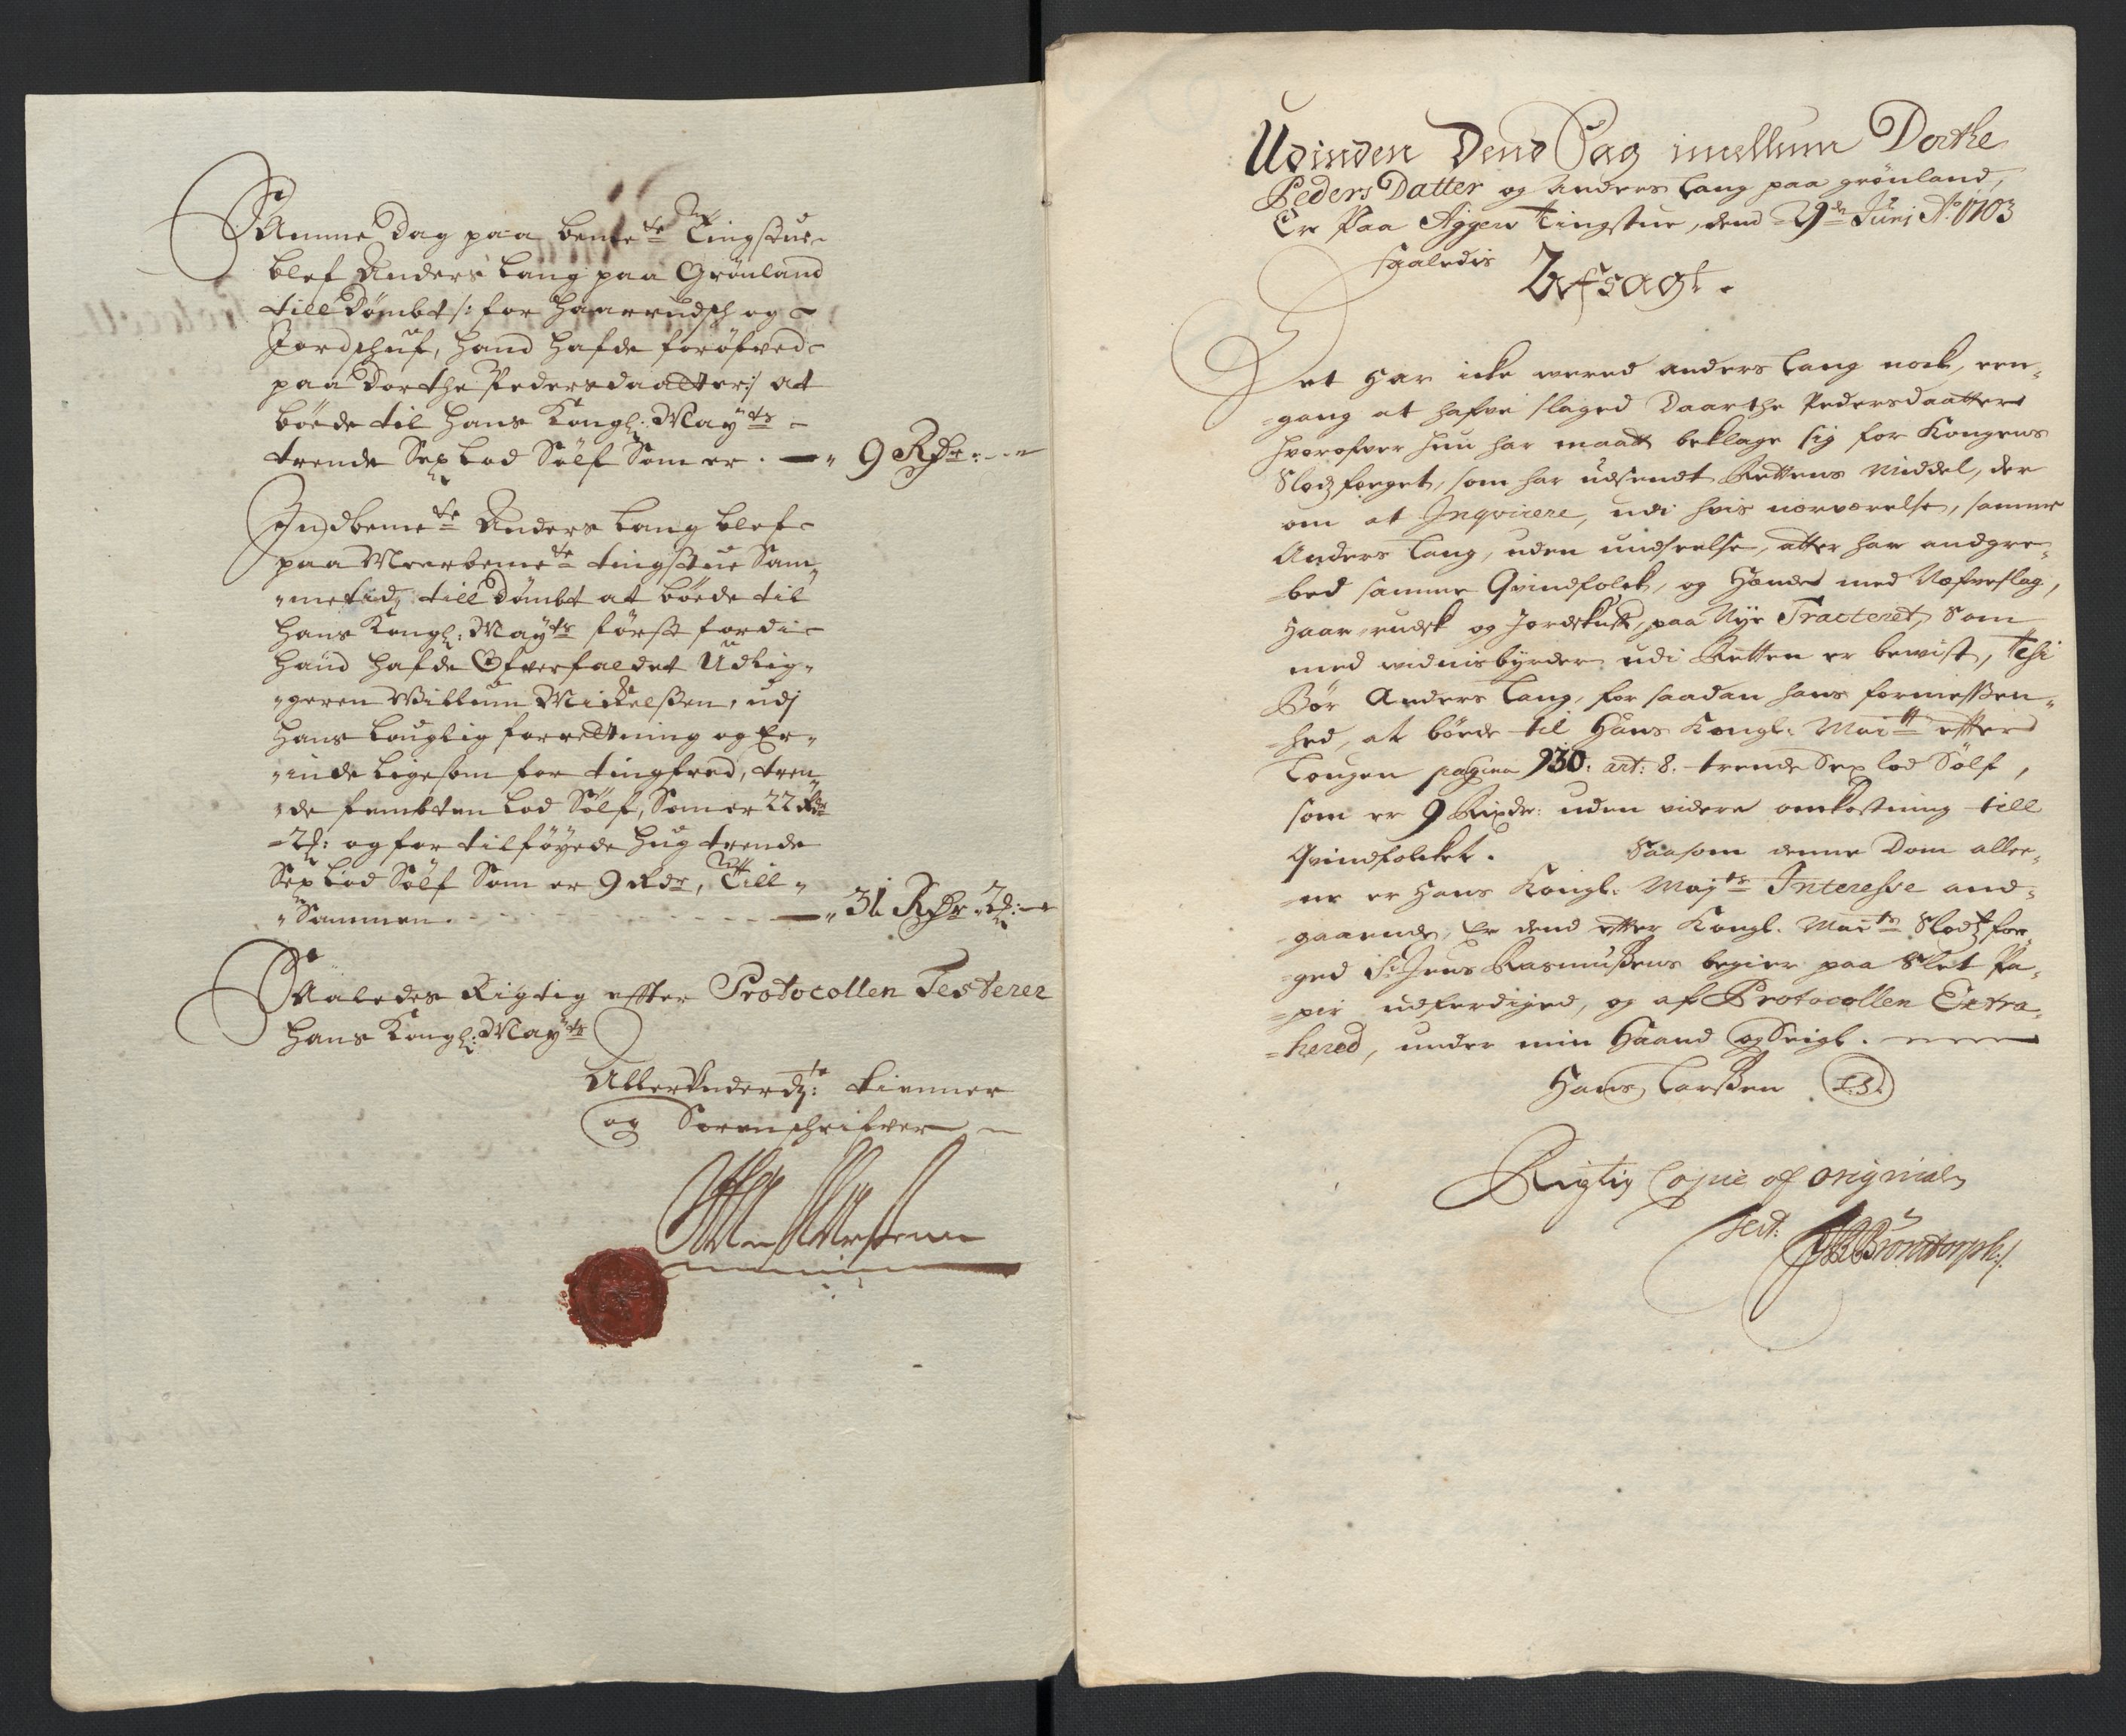 Samme Dag paa bemte Tingstue
blef Anders Lang paa Grönland
till Dömbt /: for haarrudsch og
Jordschuf, hand hafde foröfved
paa Dorthe Pedersdaatter :/ at
böede til Hans Kongl: Mayts
trende Sex Lod Sölf Som er . — 9 Rdr: - -
Indbemte Anders Lang blef
paa Meerbemte tingstue Sam,,
,,metid, till Dömbt at böede til
Hans Kongl: Mayts först fordi
hand hafde Ofverfaldet Udlig,,
,,geren Willum Mickelssen, udj
hans Louglig forrettning og Er,,
,,inde ligesom for tingfred, tren,,
,,de fembten Lod Sölf, Som er 22 Rdr
- 2 : og for tilföyede hug trende
Sex Lod Sölf Som er 9 Rdr, Till,,
,,Sammen. - - - - — 31 Rdr 2 : —
Saaledes Rigtig effter Protocollen Testerer
Hans Kongl: Mayts
Allerunderdst: tienner
og Sorenschrifver
Hans Larssen
Udinden Dend Sag imellum Dorthe
Peders Datter og Anders Lang paa grönland,
Er Paa Aggers tingstue, dend 9de Junj Ao 1703
saaledis Afsagt.
Det har icke wered anders Lang nock, een,,
=gang at hafve slaged Daarthe Pedersdaatter
hvorofver hun har maatt beklage sig for Kongens
Slodz foeget, som har udsendt Rettens Middel, der
om at Inqvirere, udi hvis nærværelse, samme
Anders Lang, uden undseelse, atter har andgre,,
=bed samme Qvindfolck, og Hende med Næfveslag,
Haar-rudsk og Jordskuft, paa Nye Tracteret, Som
med widnisbyrder udi Retten er bewist, Thi
Bör Anders Lang, for saadan hans formessen,,
=hed, at böede til Hans Kongl: Maitt effter
Lougen pagina 930: art: 8. trende Sex lod Sölf,
som er 9 Rixdr: uden videre omkostning till
Qvindfolcket. Saasom denne Dom allee,,
=ne er Hans Kongl: Majts Interesse and,,
gaaende, Er dend effter Kongl. Maits Slodz foe,,
=ged Sr Jens Rasmussens begier paa Slet Pa,,
=pir udferdiged, og af Protocollen Extra,,
=hered, under min Haand og Seigl.
Hans Larssen (L.S.)
Rigtig Copie af originalen
test:
Brondorph